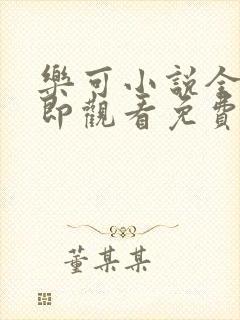 樂可小說全
即觀看免費
董某某